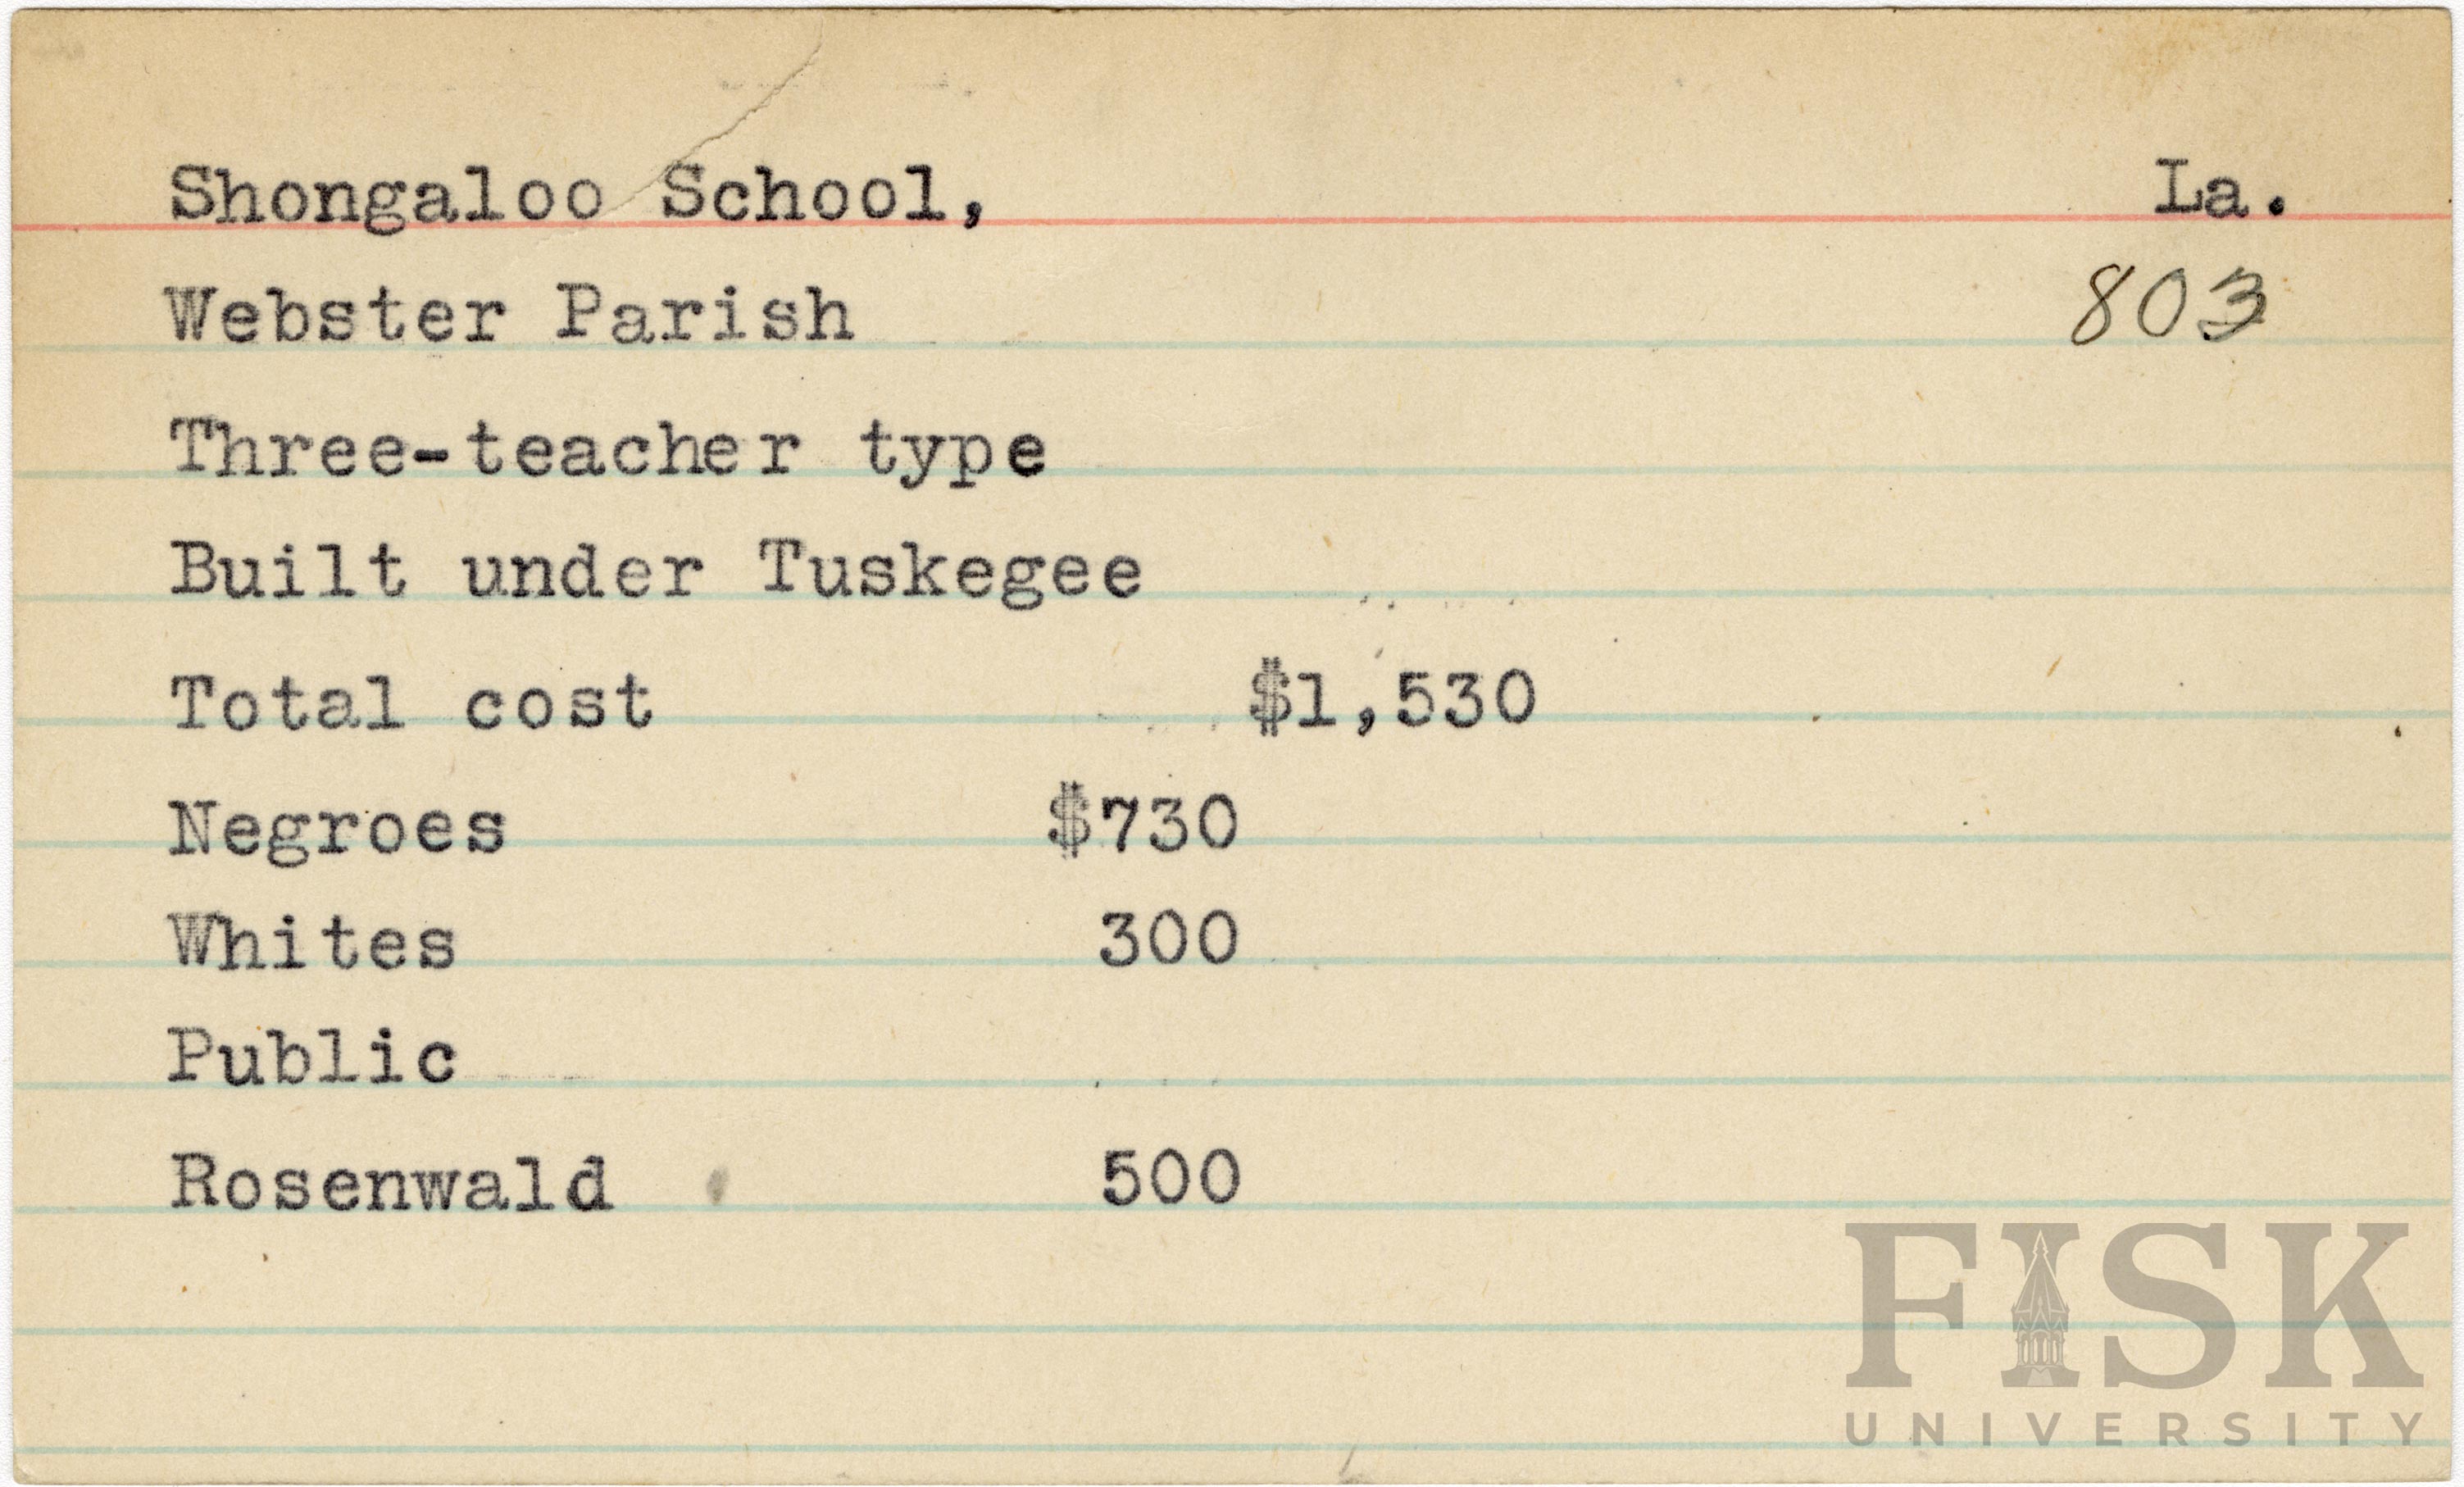 Shongaloo School, La.
Webster Parish 803
Three-teacher type
Built under Tuskegee
Total cost $1,530
Negroes $730
Whites 300
Public
Rosenwald 500
FISK
UNIVERSITY